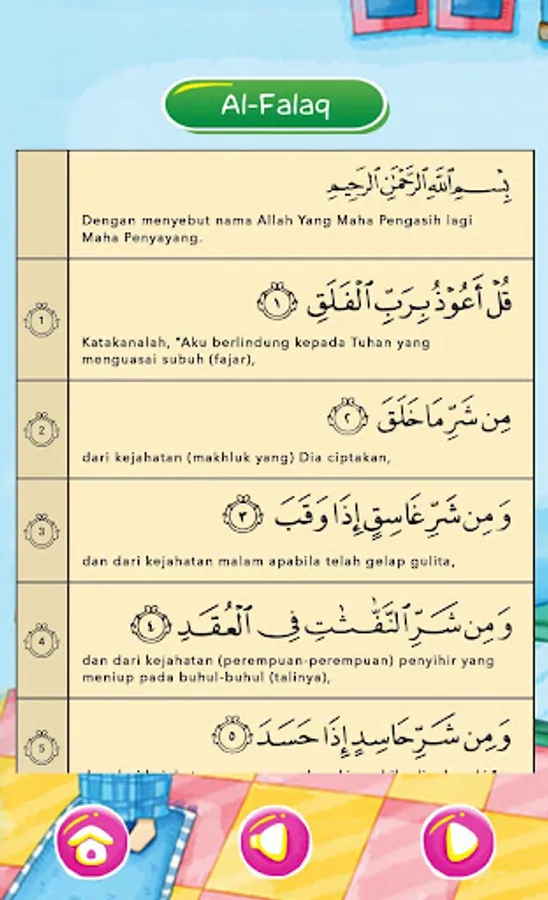 Al-Falaq
بِسْمِ اللَّهِ الرَّحْمَٰنِ الرَّحِيمِ
Dengan menyebut nama Allah Yang Maha Pengasih lagi
Maha Penyayang.
1
قُلْ أَعُوْذُ بِرَبِّ الْفَلَقِ ١
Katakanalah, "Aku berlindung kepada Tuhan yang
menguasai subuh (fajar),
2
مِن شَرِّ مَا خَلَقَ ٢
dari kejahatan (makhluk yang) Dia ciptakan,
3
وَمِن شَرِّ غَاسِقٍ إِذَا وَقَبَ ٣
dan dari kejahatan malam apabila telah gelap gulita,
4
وَمِن شَرِّ النَّفّٰثٰتِ فِى الْعُقَدِ ٤
dan dari kejahatan (perempuan-perempuan) penyihir yang
meniup pada buhul-buhul (talinya),
5
وَمِن شَرِّ حَاسِدٍ إِذَا حَسَدَ ٥